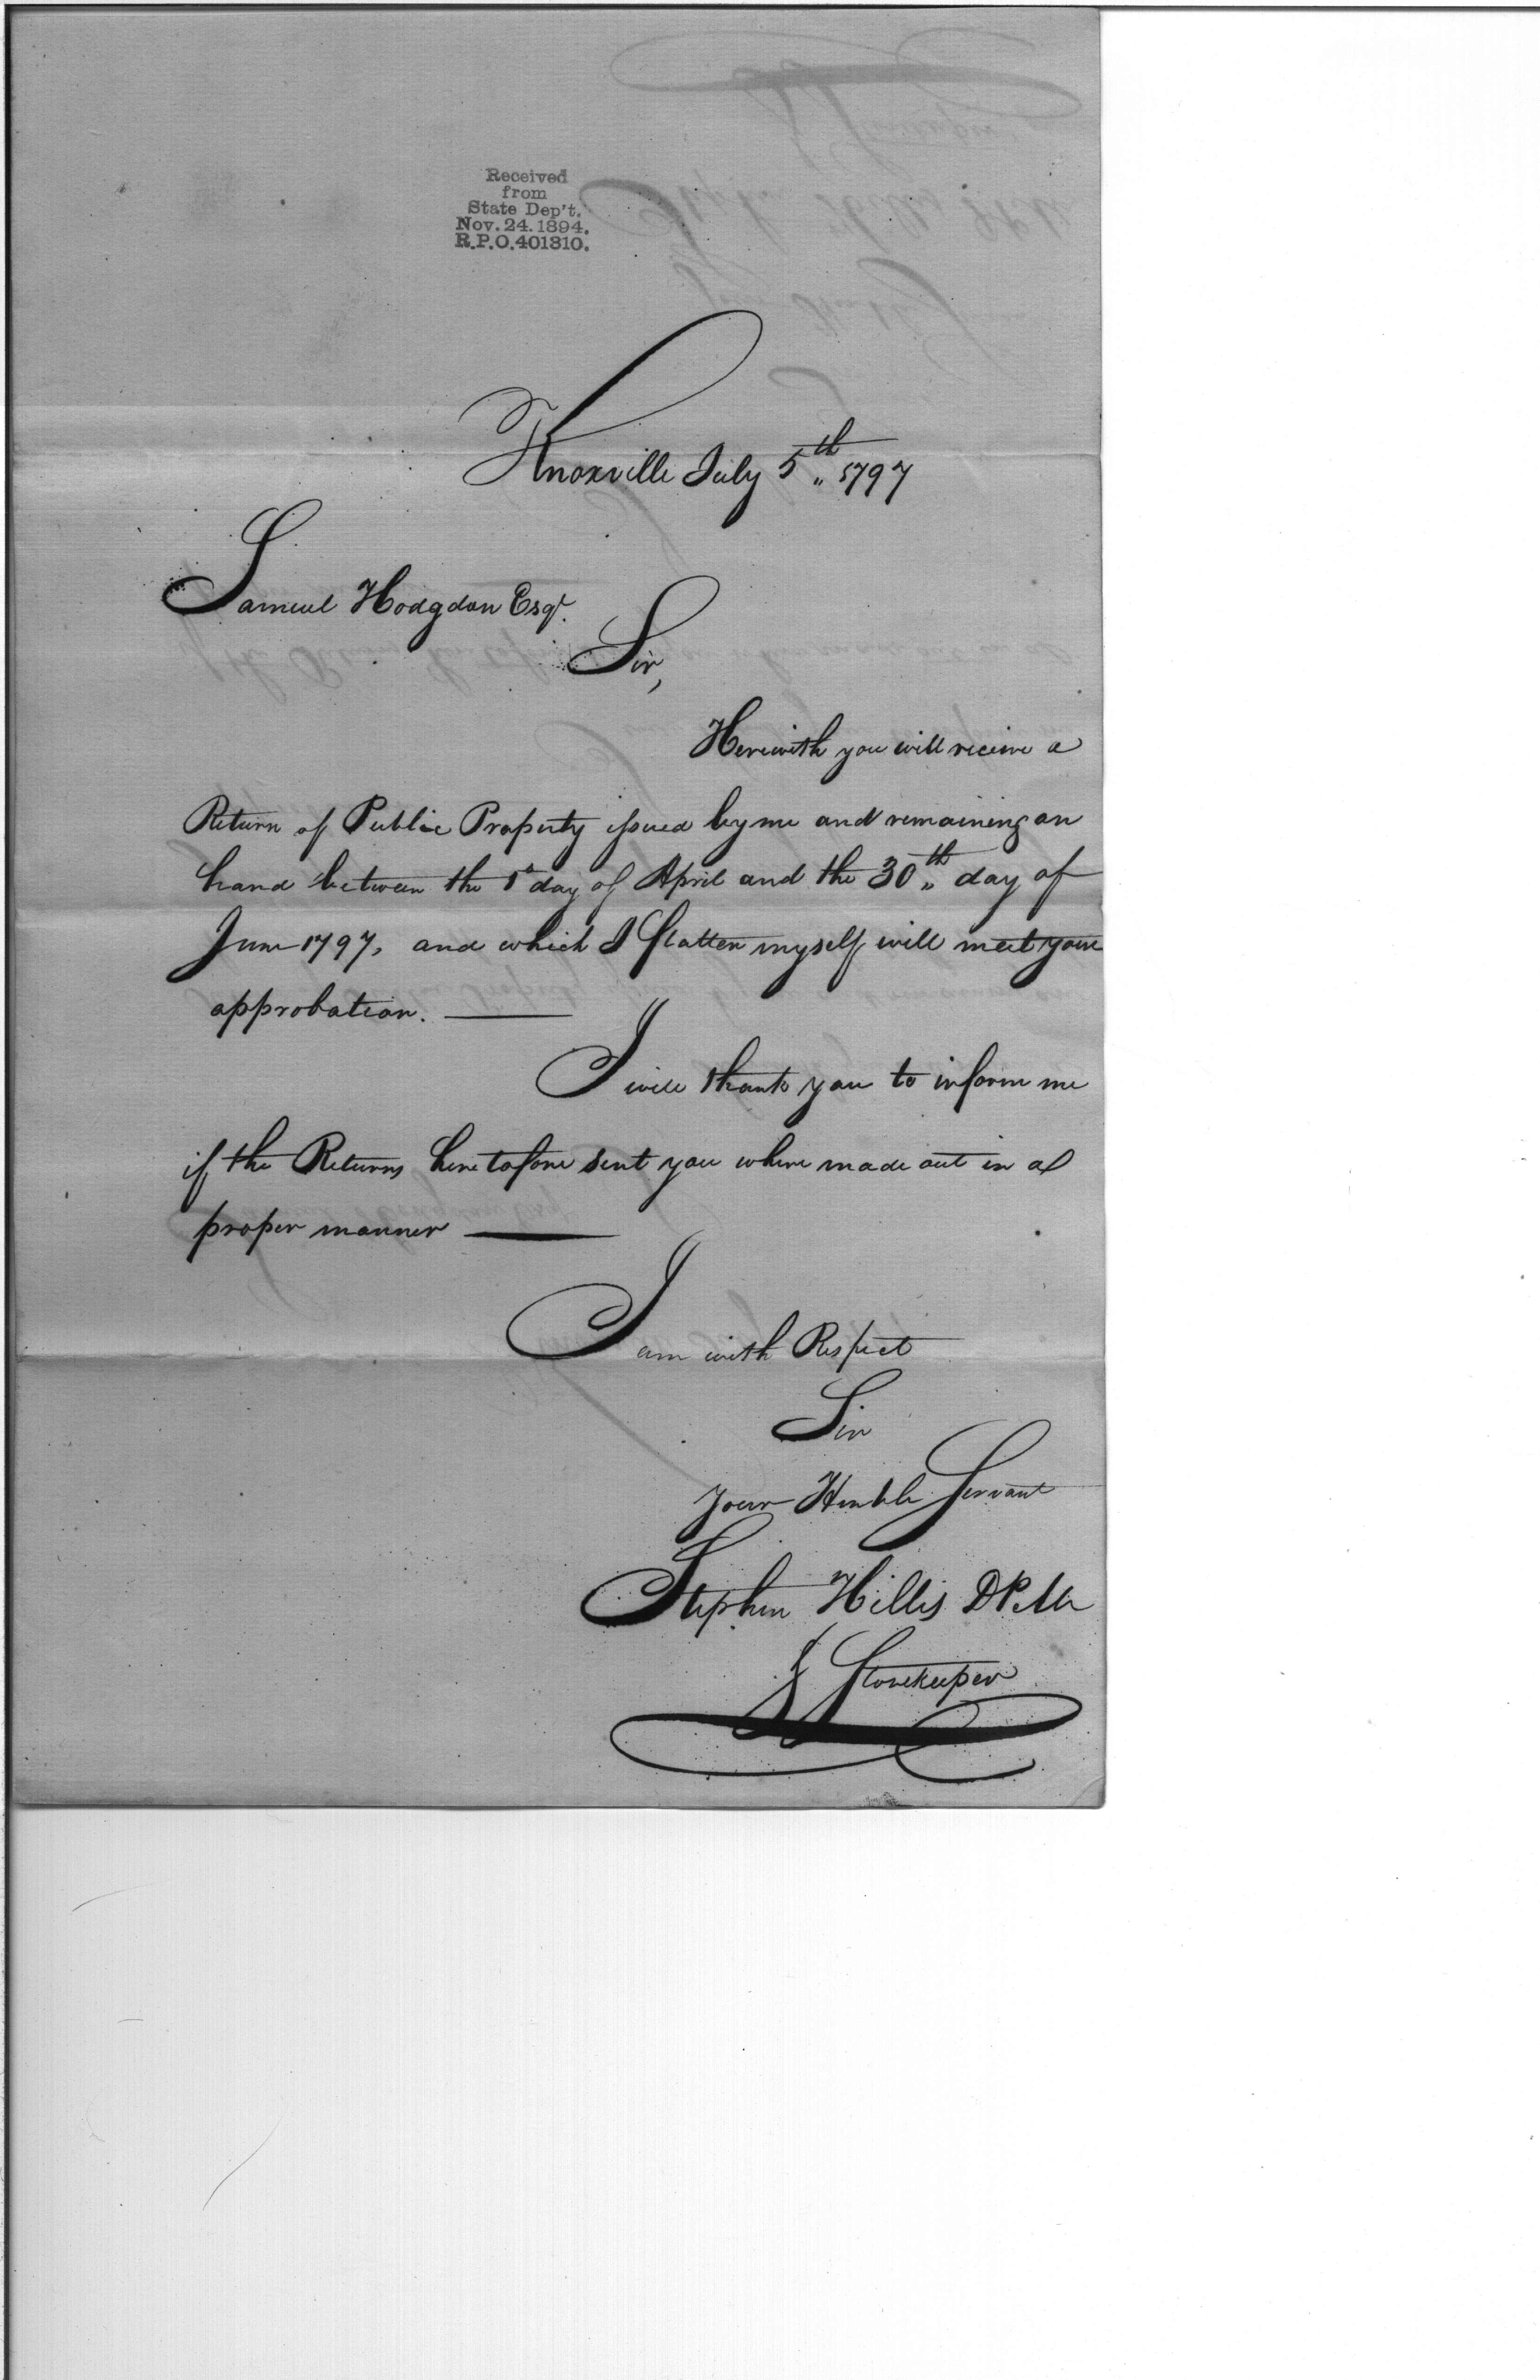 Received
from
State Dep't.
Nov. 24. 1894.
R.P.O. 401310.
Knoxville July 5th 1797
Samuel Hodgdon Esqr.
Sir,
Herewith you will receive a
Return of Public Property issued by me and remaining on
hand between the 1st day of April and the 30th day of
June 1797, and which I flatter myself will meet your
approbation.
I will thank you to inform me
if the Returns heretofore sent you where made out in a
proper manner
I am with Respect
Sir
Your Humble Servant
Stephen Hillis DPM
& Storekeeper